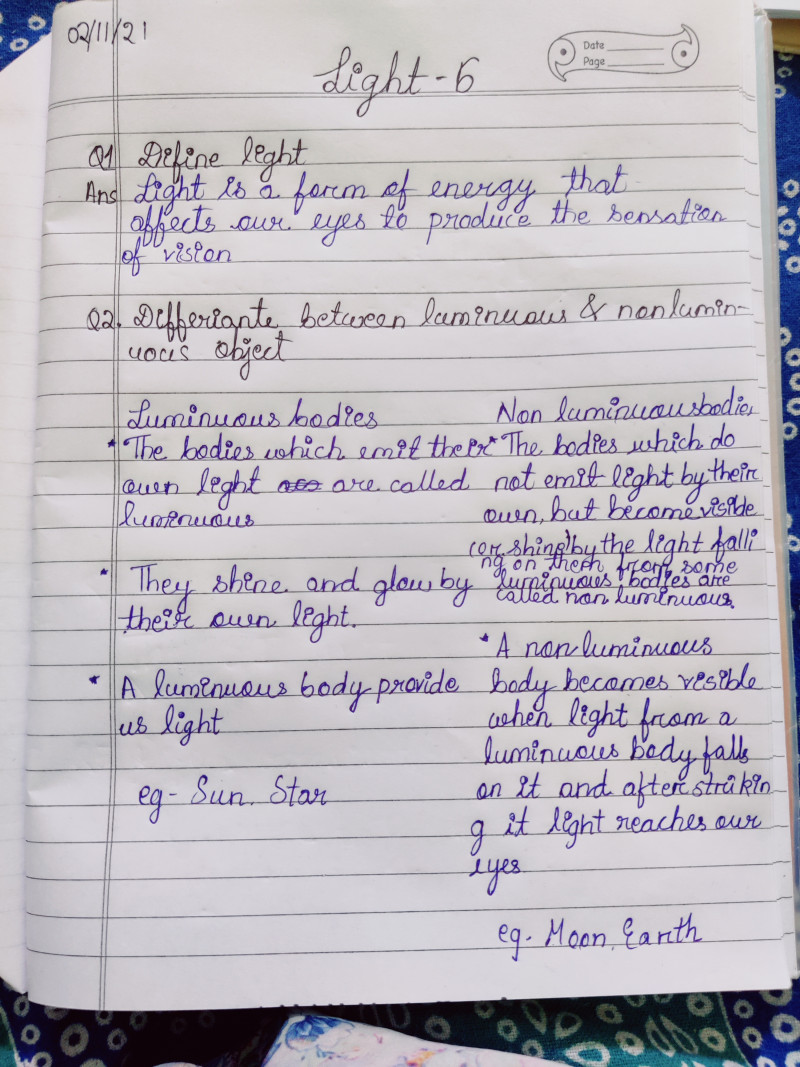 02/11/21
Date
Page
Light - 5
Q1 Define light
Ans Light is a form of energy that
affects our eyes to produce the sensation
of vision
Q2. Differiante between luminuous & nonlumin-
uous object
Luminuous bodies
* The bodies which emit their
own light are called
luminuous
* They shine and glow by
their own light.
* A luminuous body provide
us light
eg- Sun. Star
Non luminuousbodies
* The bodies which do
not emit light by their
own, but become visible
(or, shine) by the light falli
ng on them from some
luminuous bodies are
called non luminuous.
* A non luminuous
body becomes visible
when light from a
luminuous body falls
on it and after strukin
g it light reaches our
eyes
eg- Moon, Earth